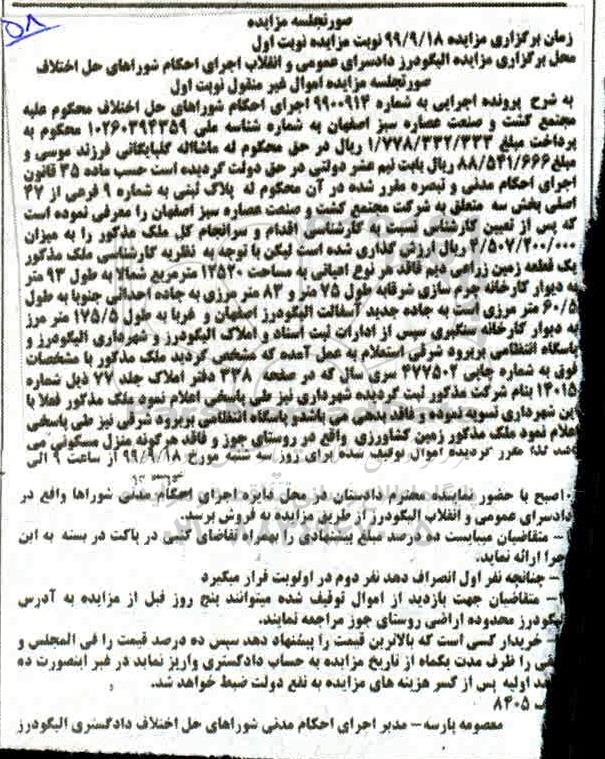 ۵۸
صورتجلسه مزایده
زمان برگزاری مزایده ۹۹/۹/۱۸ نوبت مزایده نوبت اول
محل برگزاری مزایده الیگودرز دادسرای عمومی و انقلاب اجرای احکام شوراهای حل اختلاف
صورتجلسه مزایده اموال غیر منقول نوبت اول
به شرح پرونده اجرایی به شماره ۹۹۰۰۹۱۴ اجرای احکام شوراهای حل اختلاف محکوم علیه
مجتمع کشت و صنعت عصاره سبز اصفهان به شماره شناسه ملی ۱۰۲۶۰۳۹۴۳۵۹ محکوم به
پرداخت مبلغ ۱/۷۷۸/۳۳۲/۳۳۳ ریال در حق محکوم له ماشااله گلپایگانی فرزند موسی و
مبلغ ۸۸/۵۴۱/۶۶۶ ریال بابت نیم عشر دولتی در حق دولت گردیده است حسب ماده ۳۵ قانون
اجرای احکام مدنی و تبصره مقرر شده در آن محکوم له پلاک ثبتی به شماره ۹ فرعی از ۴۷
اصلی بخش سه متعلق به شرکت مجتمع کشت و صنعت عصاره سبز اصفهان را معرفی نموده است
که پس از تعیین کارشناس نسبت به کارشناسی اقدام و سرانجام کل ملک مذکور را به میزان
۲/۵۰۷/۴۰۰/۰۰۰ ریال ارزش گذاری شده است لیکن با توجه به نظریه کارشناسی ملک مذکور
یک قطعه زمین زراعی دیم فاقد هر نوع اعیانی به مساحت ۱۲۵۲۰ مترمربع شمالا به طول ۹۳ متر
به دیوار کارخانه سازی شرقا به طول ۷۵ متر و ۸۳ متر مرزی به جاده احداثی جنوبا به طول
۶۰/۵ متر مرزی است به جاده جدید آسفالت الیگودرز اصفهان و غربا به طول ۱۷۵/۵ متر مرز
به دیوار کارخانه سنگبری سپس از ادارات ثبت اسناد و املاک الیگودرز و شهرداری الیگودرز و
پاسگاه انتظامی بربرود شرقی استعلام به عمل آمده که مشخص گردید ملک مذکور با مشخصات
فوق به شماره چاپی ۴۷۷۵۰۲ سری سال که در صفحه ۳۳۸ دفتر املاک جلد ۷۷ ذیل شماره
۱۴۰۱۵ بنام شرکت مذکور ثبت گردیده شهرداری نیز طی پاسخی اعلام نمود ملک مذکور فعلا با
این شهرداری تسویه نموده و فاقد بدهی می باشد و پاسگاه انتظامی بربرود شرقی نیز طی پاسخی
اعلام نمود ملک مذکور زمین کشاورزی واقع در روستای جوز و فاقد هرگونه منزل مسکونی می
باشد لذا مقرر گردیده اموال توقیف شده برای روز سه شنبه مورخ ۹۹/۹/۱۸ از ساعت ۹ الی
۱۰صبح با حضور نماینده محترم دادستان در محل دایره اجرای احکام مدنی شوراها واقع در
دادسرای عمومی و انقلاب الیگودرز از طریق مزایده به فروش برسد.
– متقاضیان میبایست ده درصد مبلغ پیشنهادی را بهمراه تقاضای کتبی در پاکت در بسته به این
اجرا ارائه نماید.
– چنانچه نفر اول انصراف دهد نفر دوم در اولویت قرار میگیرد
– متقاضیان جهت بازدید از اموال توقیف شده میتوانند پنج روز قبل از مزایده به آدرس
الیگودرز محدوده اراضی روستای جوز مراجعه نمایند.
– خریدار کسی است که بالاترین قیمت را پیشنهاد دهد سپس ده درصد قیمت را فی المجلس و
را ظرف مدت یکماه از تاریخ مزایده به حساب دادگستری واریز نماید در غیر اینصورت ده
اولیه پس از کسر هزینه های مزایده به نفع دولت ضبط خواهد شد.
ف ۸۴۰۵
معصومه پارسه – مدیر اجرای احکام مدنی شوراهای حل اختلاف دادگستری الیگودرز